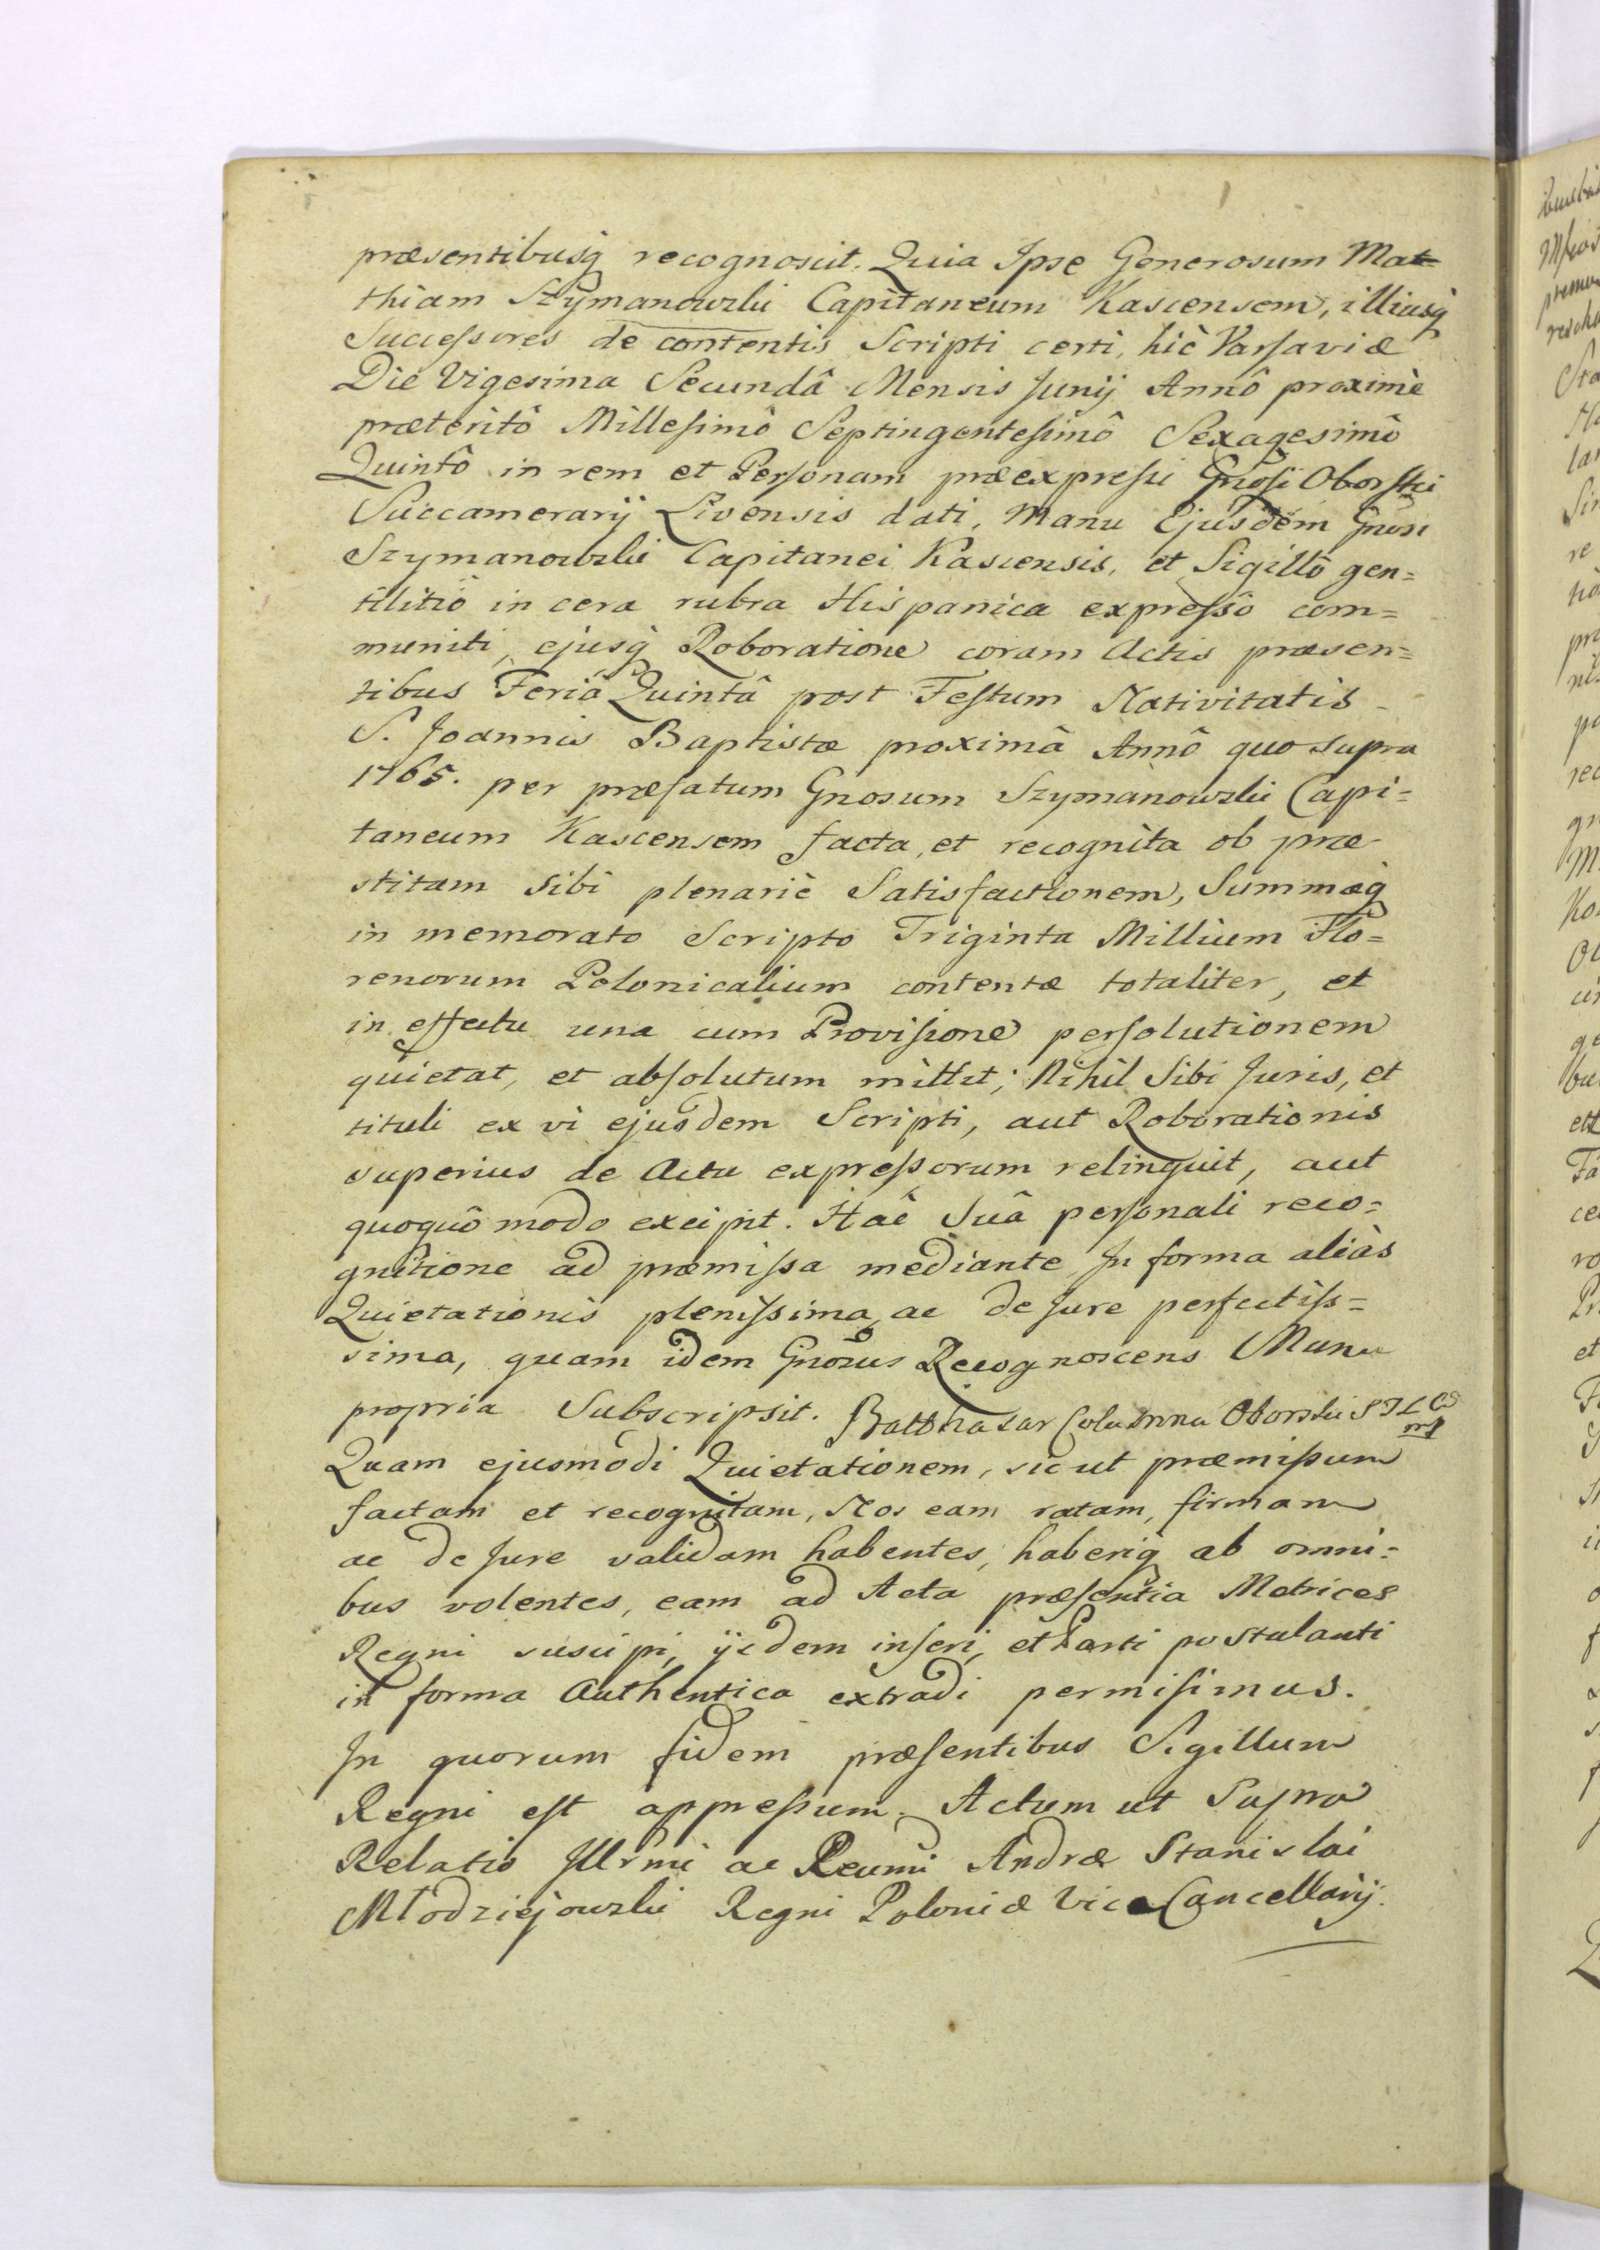 præsentibusq̃ recognoscit. Quia Ipse Generosum Mat=
thiam Szymanowski Capitaneum Kascensem, illiusq̃
Successores de contentis Scripti certi, hic Varsaviæ
Die Vigesima Secundâ Mensis Junij Annô proximè
præteritô Millesimô Septingentesimô Sexagesimô
Quintô in rem et Personam præexpressi Gnosi Oborski
Succamerarij Livensis dati, manu Ejusdem Gnosi
Szymanowski Capitanei Kascensis, et Sigillô gen=
tilitiô in cera rubra Hispanica expressô com=
muniti, ejusq̃ Roboratione coram Actis præsen=
tibus Feriâ Quintâ post Festum Nativitatis
S. Joannis Baptistæ proximâ Annô quo supra
1765. per præfatum Gnosum Szymanowski Capi=
taneum Kascensem facta, et recognita ob præ
stitam sibi plenariè Satisfactionem, Summæq̃
in memorato Scripto Triginta Millium Flo=
renorum Polonicalium contentæ totaliter, et
in effectu una cum Provisione persolutionem
quietat, et absolutum mittit; Nihil Sibi Juris, et
tituli ex vi ejusdem Scripti, aut Roborationis
superius de Actu expressorum relinquit, aut
quoquô modo excipit. Hâc Suâ personali reco=
gnitione ad præmissa mediante In forma aliàs
Quietationis plenissima, ac de Jure perfectiss=
sima, quam idem Gnosus Recognoscens Manu
propria Subscripsit. Balthasar Columna Oborski
Quam ejusmodi Quietationem, sicut præmissum
factam et recognitam, Nos eam ratam, firmam
ac de Jure validam habentes, haberiq̃ ab omni=
bus volentes, eam ad Acta præsentia Metrices
Regni suscipi, ijsdem inseri, et Parti postulanti
in forma Authentica extradi permisimus.
In quorum fidem præsentibus Sigillum
Regni est appressum. Actum ut Supra
Relatio Illrmi ac Reumi Andræ Stanislai
Młodziejowski Regni Poloniæ Vice Cancellarij.